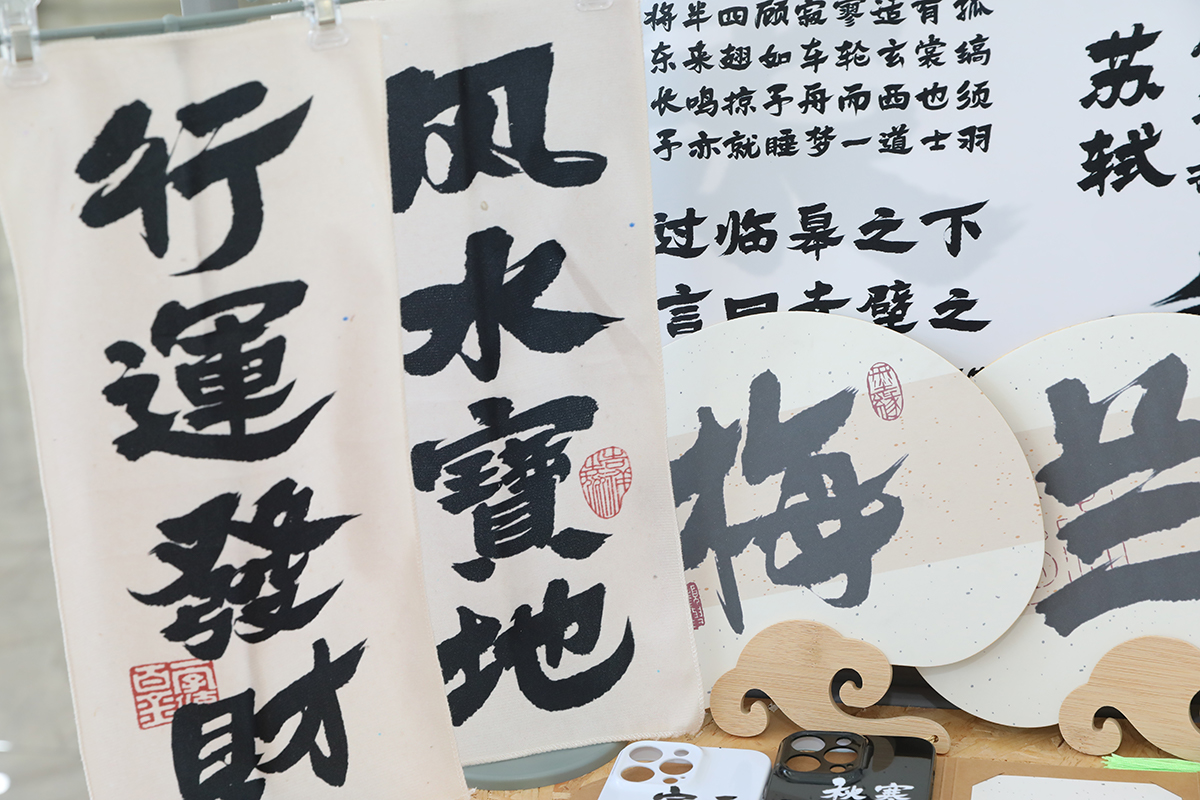 行運發財
风水寶地
将半四顾寂寥适有孤
东来翅如车轮玄裳缟
长鸣掠予舟而西也须
予亦就睡梦一道士羽
过临皋之下
言曰赤壁之
苏轼
梅
兰
秋寒